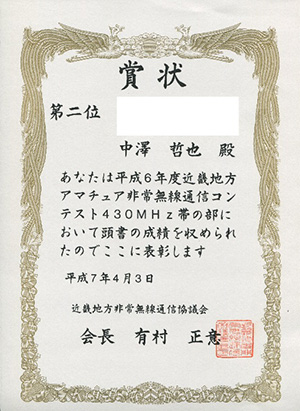 賞状
第二位
中澤 哲也 殿
あなたは平成6年度近畿地方
アマチュア非常無線通信コン
テスト430MHz帯の部に
おいて頭書の成績を収められ
たのでここに表彰します
平成7年4月3日
近畿地方非常無線通信協議会
会長 有村 正意